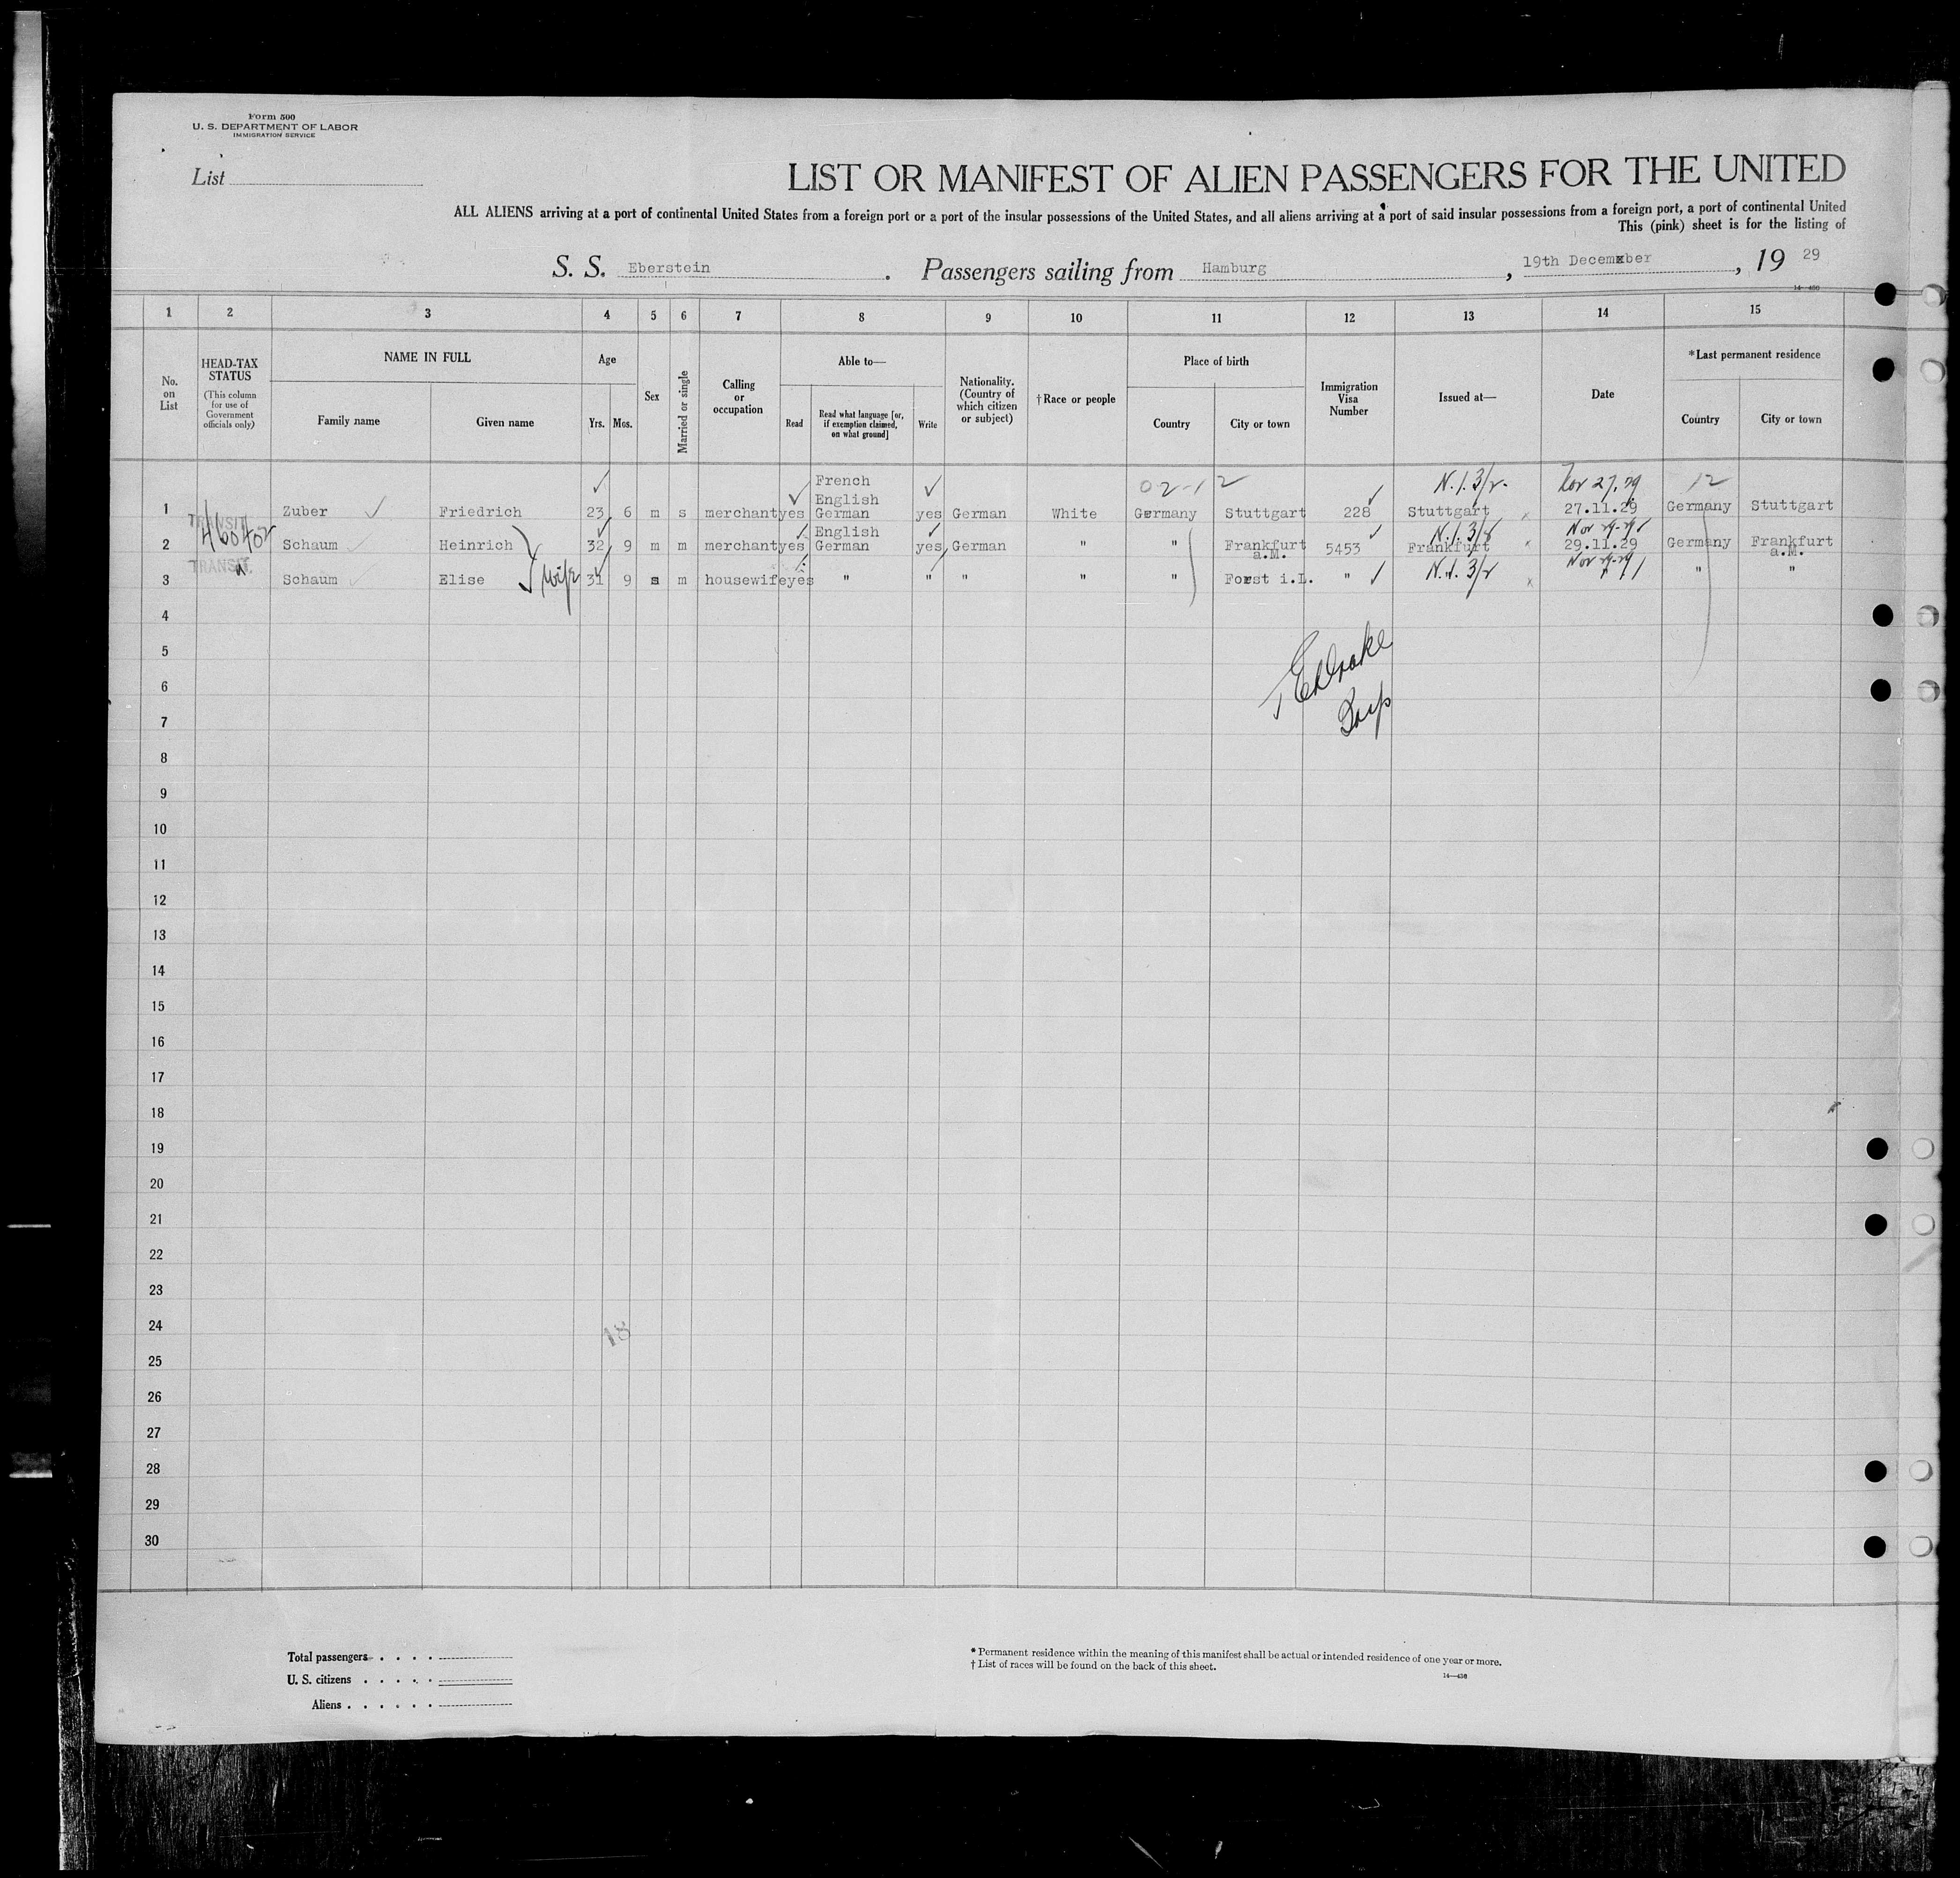 Form 500
U. S. DEPARTMENT OF LABOR
IMMIGRATION SERVICE
List
LIST OR MANIFEST OF ALIEN PASSENGERS FOR THE UNITED
ALL ALIENS arriving at a port of continental United States from a foreign port or a port of the insular possessions of the United States, and all aliens arriving at a port of said insular possessions from a foreign port, a port of continental United
This (pink) sheet is for the listing of
S. S. Eberstein . Passengers sailing from Hamburg , 19th December , 19 29
14—430
1 2 3 4 5 6 7 8 9 10 11 12 13 14 15
No. on List
HEAD-TAX STATUS
(This column for use of Government officials only)
NAME IN FULL
Family name
Given name
Age
Yrs.
Mos.
Sex
Married or single
Calling or occupation
Able to—
Read
Read what language [or, if exemption claimed, on what ground]
Write
Nationality. (Country of which citizen or subject)
†Race or people
Place of birth
Country
City or town
Immigration Visa Number
Issued at—
Date
*Last permanent residence
Country
City or town
French 02-12 N.I. 3/2 Nov 27, 29 12
English
1 Zuber Friedrich 23 6 m s merchant yes German yes German White Germany Stuttgart 228 Stuttgart 27.11.29 Germany Stuttgart
TRANSIT
English Nov 29-29
2 Schaum Heinrich 32 9 m m merchant yes German yes German " " Frankfurt a.M. 5453 Frankfurt 29.11.29 Germany Frankfurt a.M.
TRANSIT
Nov 29-29
3 Schaum Elise wife 31 9 m housewife yes " " " " " Forst i.L. " N.I. 3/2 " "
4
5
6
7
8
9
10
11
12
13
14
15
16
17
18
19
20
21
22
23
24
18
25
26
27
28
29
30
Total passengers
U. S. citizens
Aliens
* Permanent residence within the meaning of this manifest shall be actual or intended residence of one year or more.
† List of races will be found on the back of this sheet.
14—430